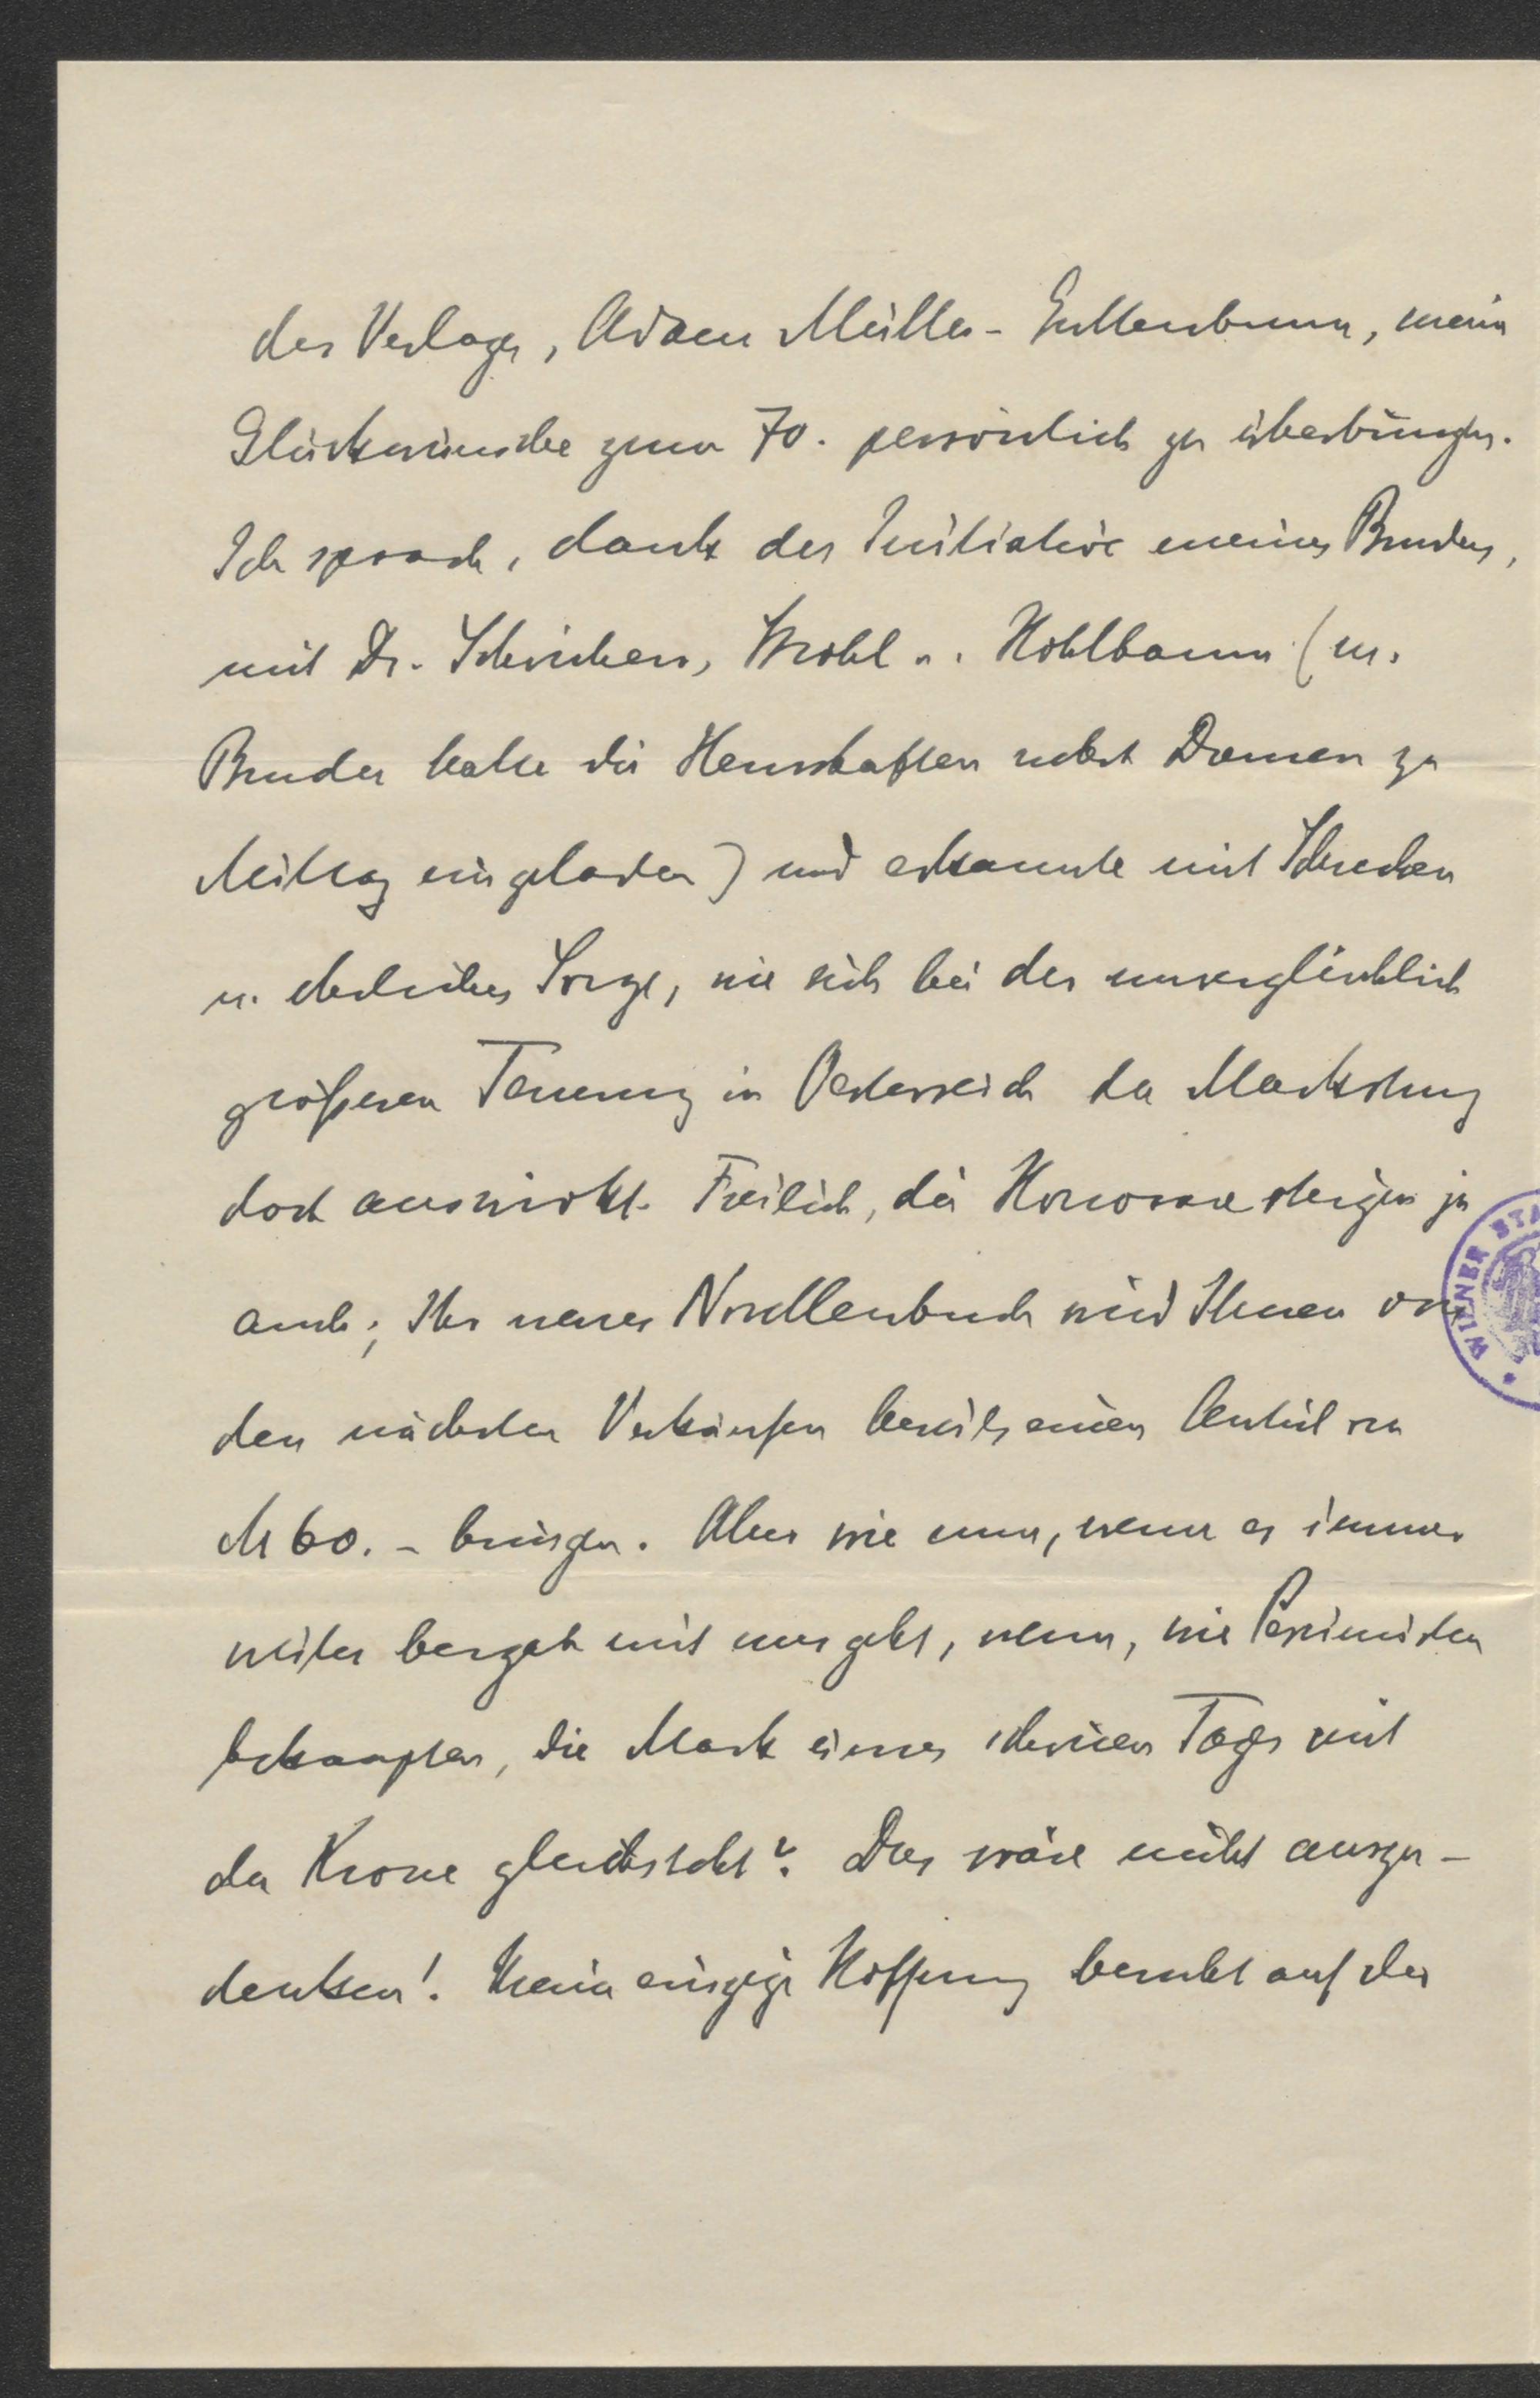 des Verlages, Adam Müller-Guttenbrunn, meine
Glückwünsche zum 70. persönlich zu überbringen.
Ich sprach, dank der Initiative meines Bruders,
mit Dr. Strobl u. Hohlbaum (m.
Bruder hatte die Herrschaften nebst Damen zu
Mittag eingeladen) und erkannte mit Schrecken
u. ehrlicher Sorge, wie sich bei der unvergleichlich
größeren Teuerung in Oesterreich der Marksturz
dort auswirkt. Freilich, die Honorare steigen ja
auch; Ihr neues Novellenbuch wird Ihnen von
den nächsten Verkäufen bereits einen Anteil von
M 60.- bringen. Aber wie nun, wenn es immer
weiter bergab mit uns geht, wenn, wie Pessimisten
behaupten, die Mark eines schönen Tages mit
der Krone gleichsteht? Das wäre nicht auszu-
denken! Meine einzige Hoffnung beruht auf der
WIENER STA